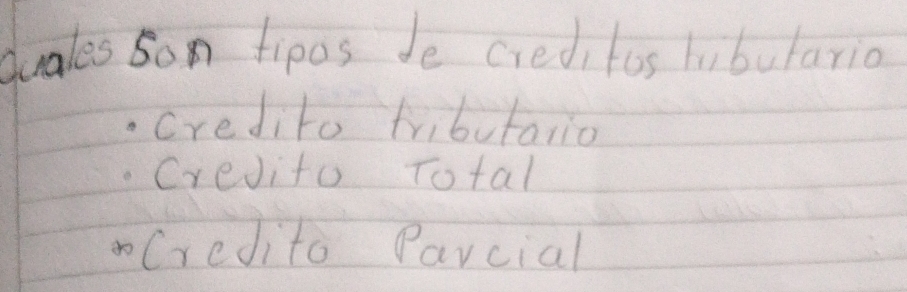 Quales son tipos de creditos tributario
• Credito tributario
• Credito Total
• Credito Parcial